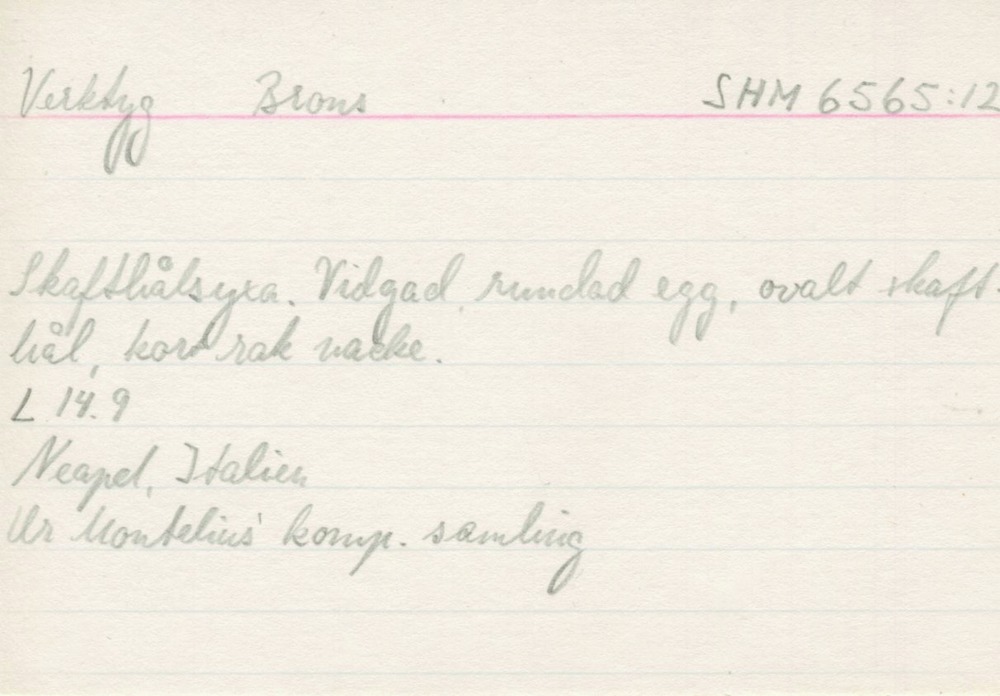 Verktyg Brons SHM 6565:12
Skafthålsyxa. Vidgad, rundad egg, ovalt skaft-
hål, kort rak nacke.
L 14.9
Neapel, Italien
Ur Montelius' komp. samling